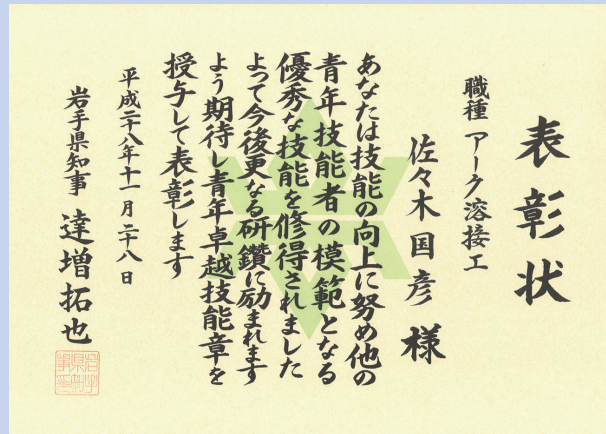 表彰状
職種 アーク溶接工
佐々木国彦 様
あなたは技能の向上に努め他の
青年技能者の模範となる
優秀な技能を修得されました
よって今後更なる研鑽に励まれます
よう期待し青年卓越技能章を
授与して表彰します
平成二十八年十一月二十八日
岩手県知事 達増拓也